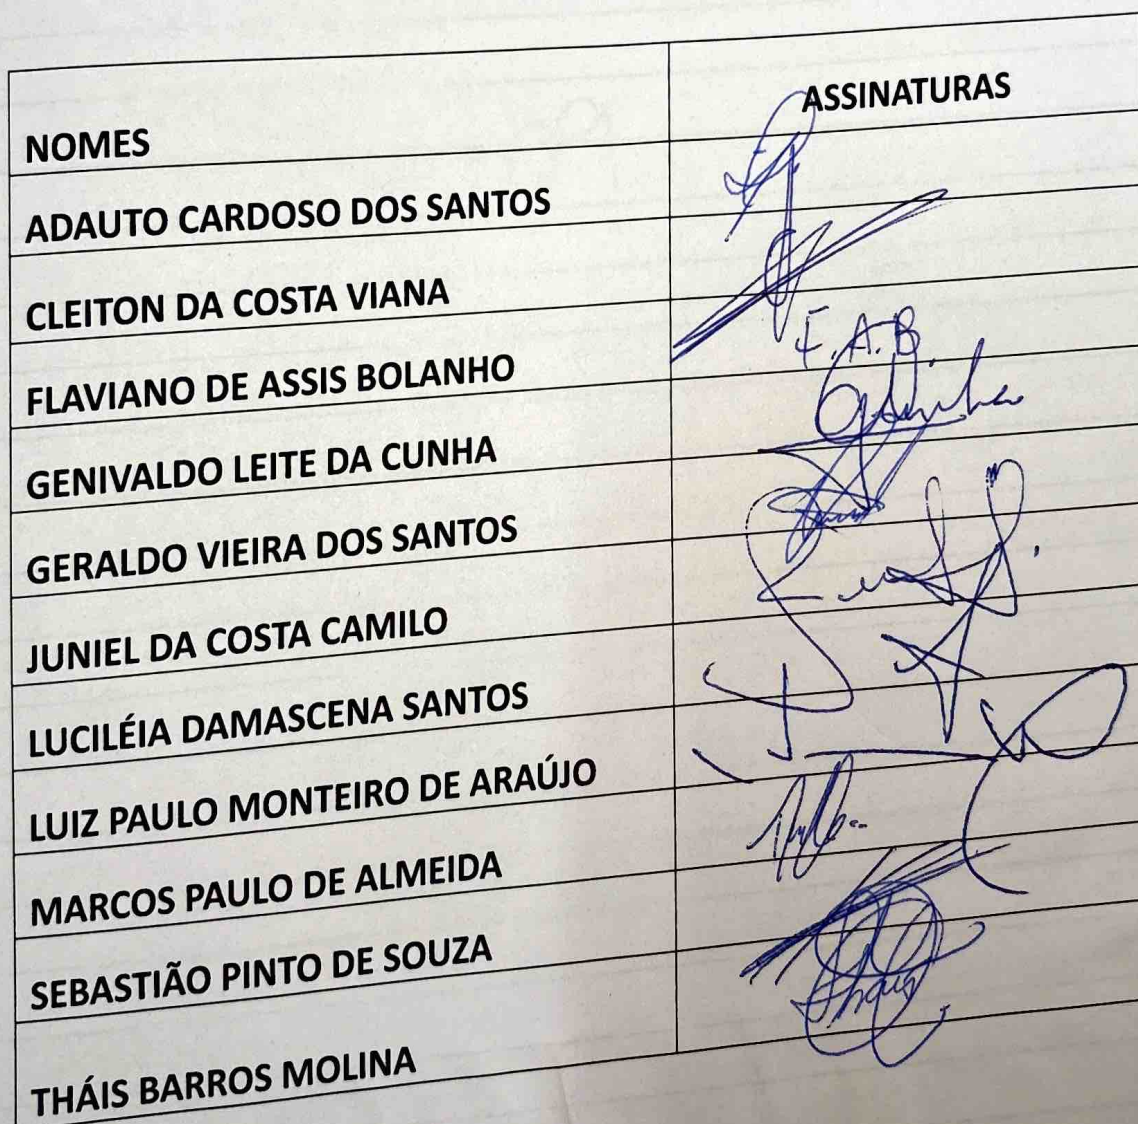 NOMES ASSINATURAS
ADAUTO CARDOSO DOS SANTOS
CLEITON DA COSTA VIANA
FLAVIANO DE ASSIS BOLANHO F.A.B.
GENIVALDO LEITE DA CUNHA
GERALDO VIEIRA DOS SANTOS
JUNIEL DA COSTA CAMILO
LUCILÉIA DAMASCENA SANTOS
LUIZ PAULO MONTEIRO DE ARAÚJO
MARCOS PAULO DE ALMEIDA
SEBASTIÃO PINTO DE SOUZA
THÁIS BARROS MOLINA